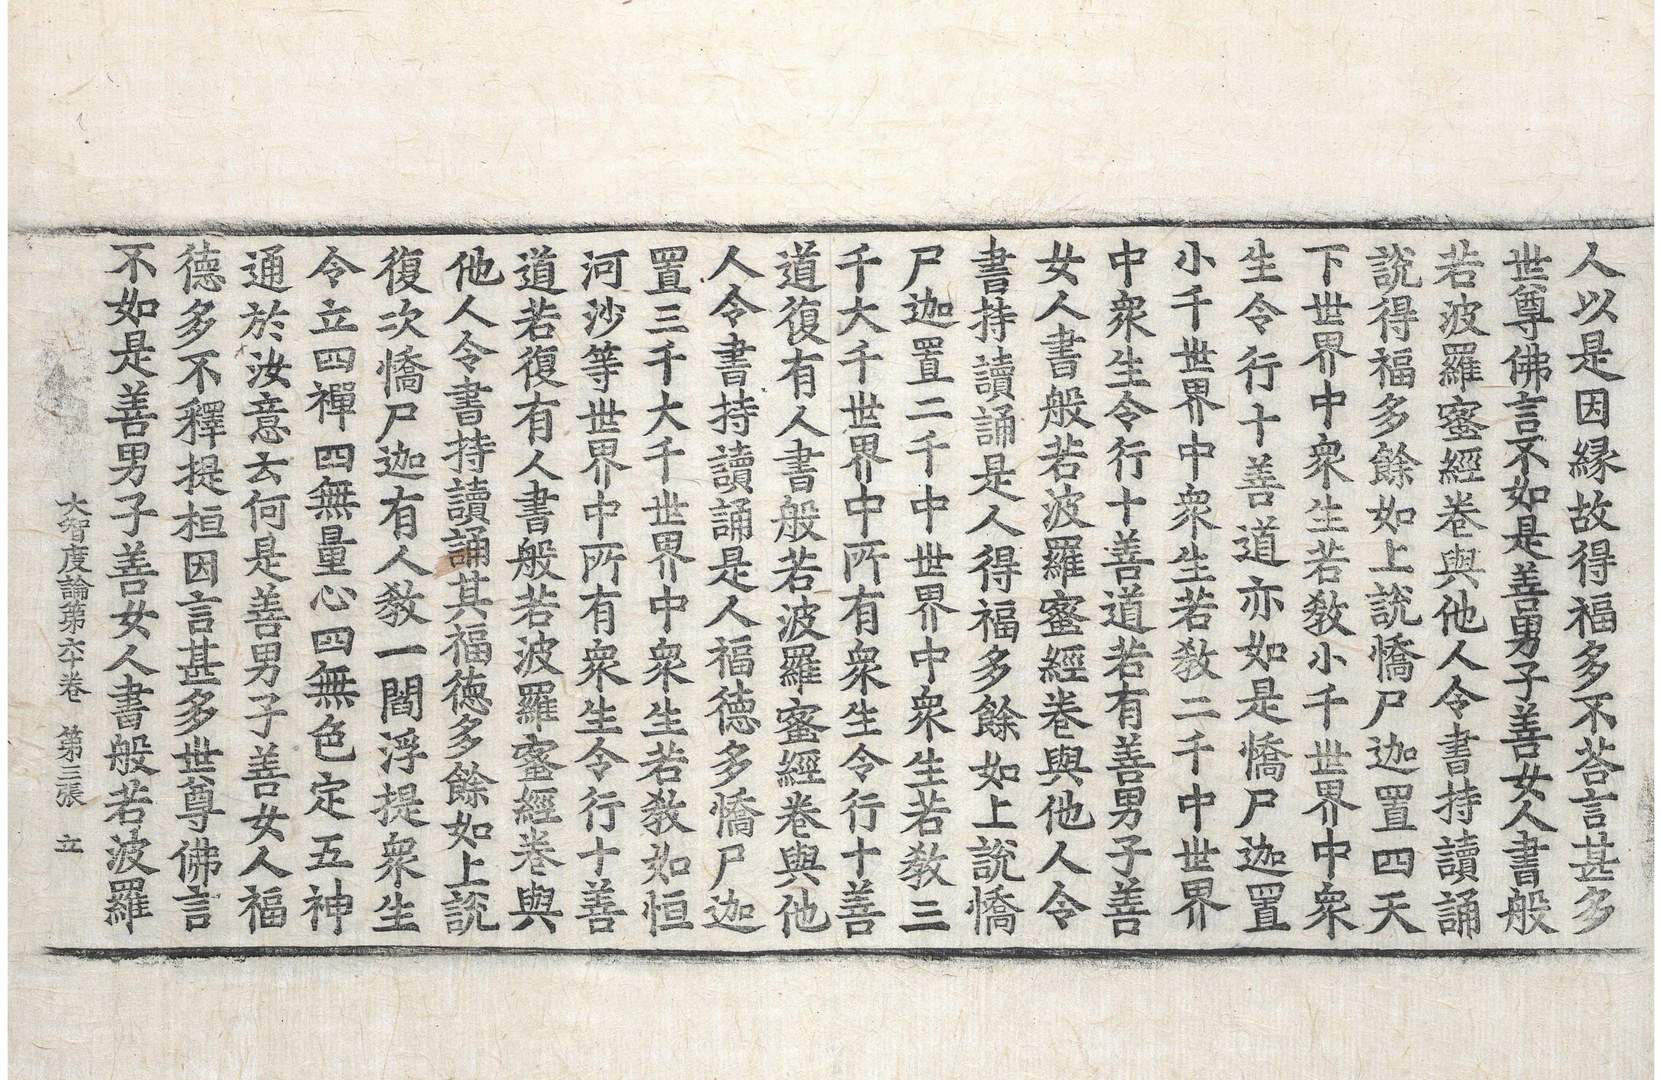 人以是因緣故得福多不荅言甚多
世尊佛言不如是善男子善女人書般
若波羅蜜經卷與他人令書持讀誦
說得福多餘如上說憍尸迦置四天
下世界中衆生若教小千世界中衆
生令行十善道亦如是憍尸迦置
小千世界中衆生若教二千中世界
中衆生令行十善道若有善男子善
女人書般若波羅蜜經卷與他人令
書持讀誦是人得福多餘如上說憍
尸迦置二千中世界中衆生若教三
千大千世界中所有衆生令行十善
道復有人書般若波羅蜜經卷與他
人令書持讀誦是人福德多憍尸迦
置三千大千世界中衆生若教如恒
河沙等世界中所有衆生令行十善
道若復有人書般若波羅蜜經卷與
他人令書持讀誦其福德多餘如上說
復次憍尸迦有人教一閻浮提衆生
令立四禪四無量心四無色定五神
通於汝意云何是善男子善女人福
德多不釋提桓因言甚多世尊佛言
不如是善男子善女人書般若波羅
大智度論第六十卷 第三張 立